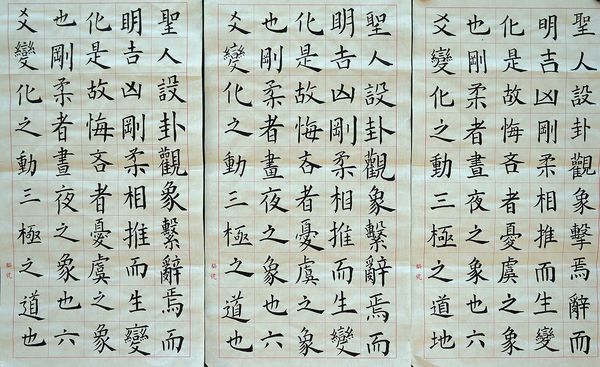 聖人設卦觀象擊焉辭而
明吉凶剛柔相推而生變
化是故悔吝者憂虞之象
也剛柔者晝夜之象也六
爻變化之動三極之道地
聖人設卦觀象繫辭焉而
明吉凶剛柔相推而生變
化是故悔吝者憂虞之象
也剛柔者晝夜之象也六
爻變化之動三極之道也
聖人設卦觀象繫辭焉而
明吉凶剛柔相推而生變
化是故悔吝者憂虞之象
也剛柔者晝夜之象也六
爻變化之動三極之道也